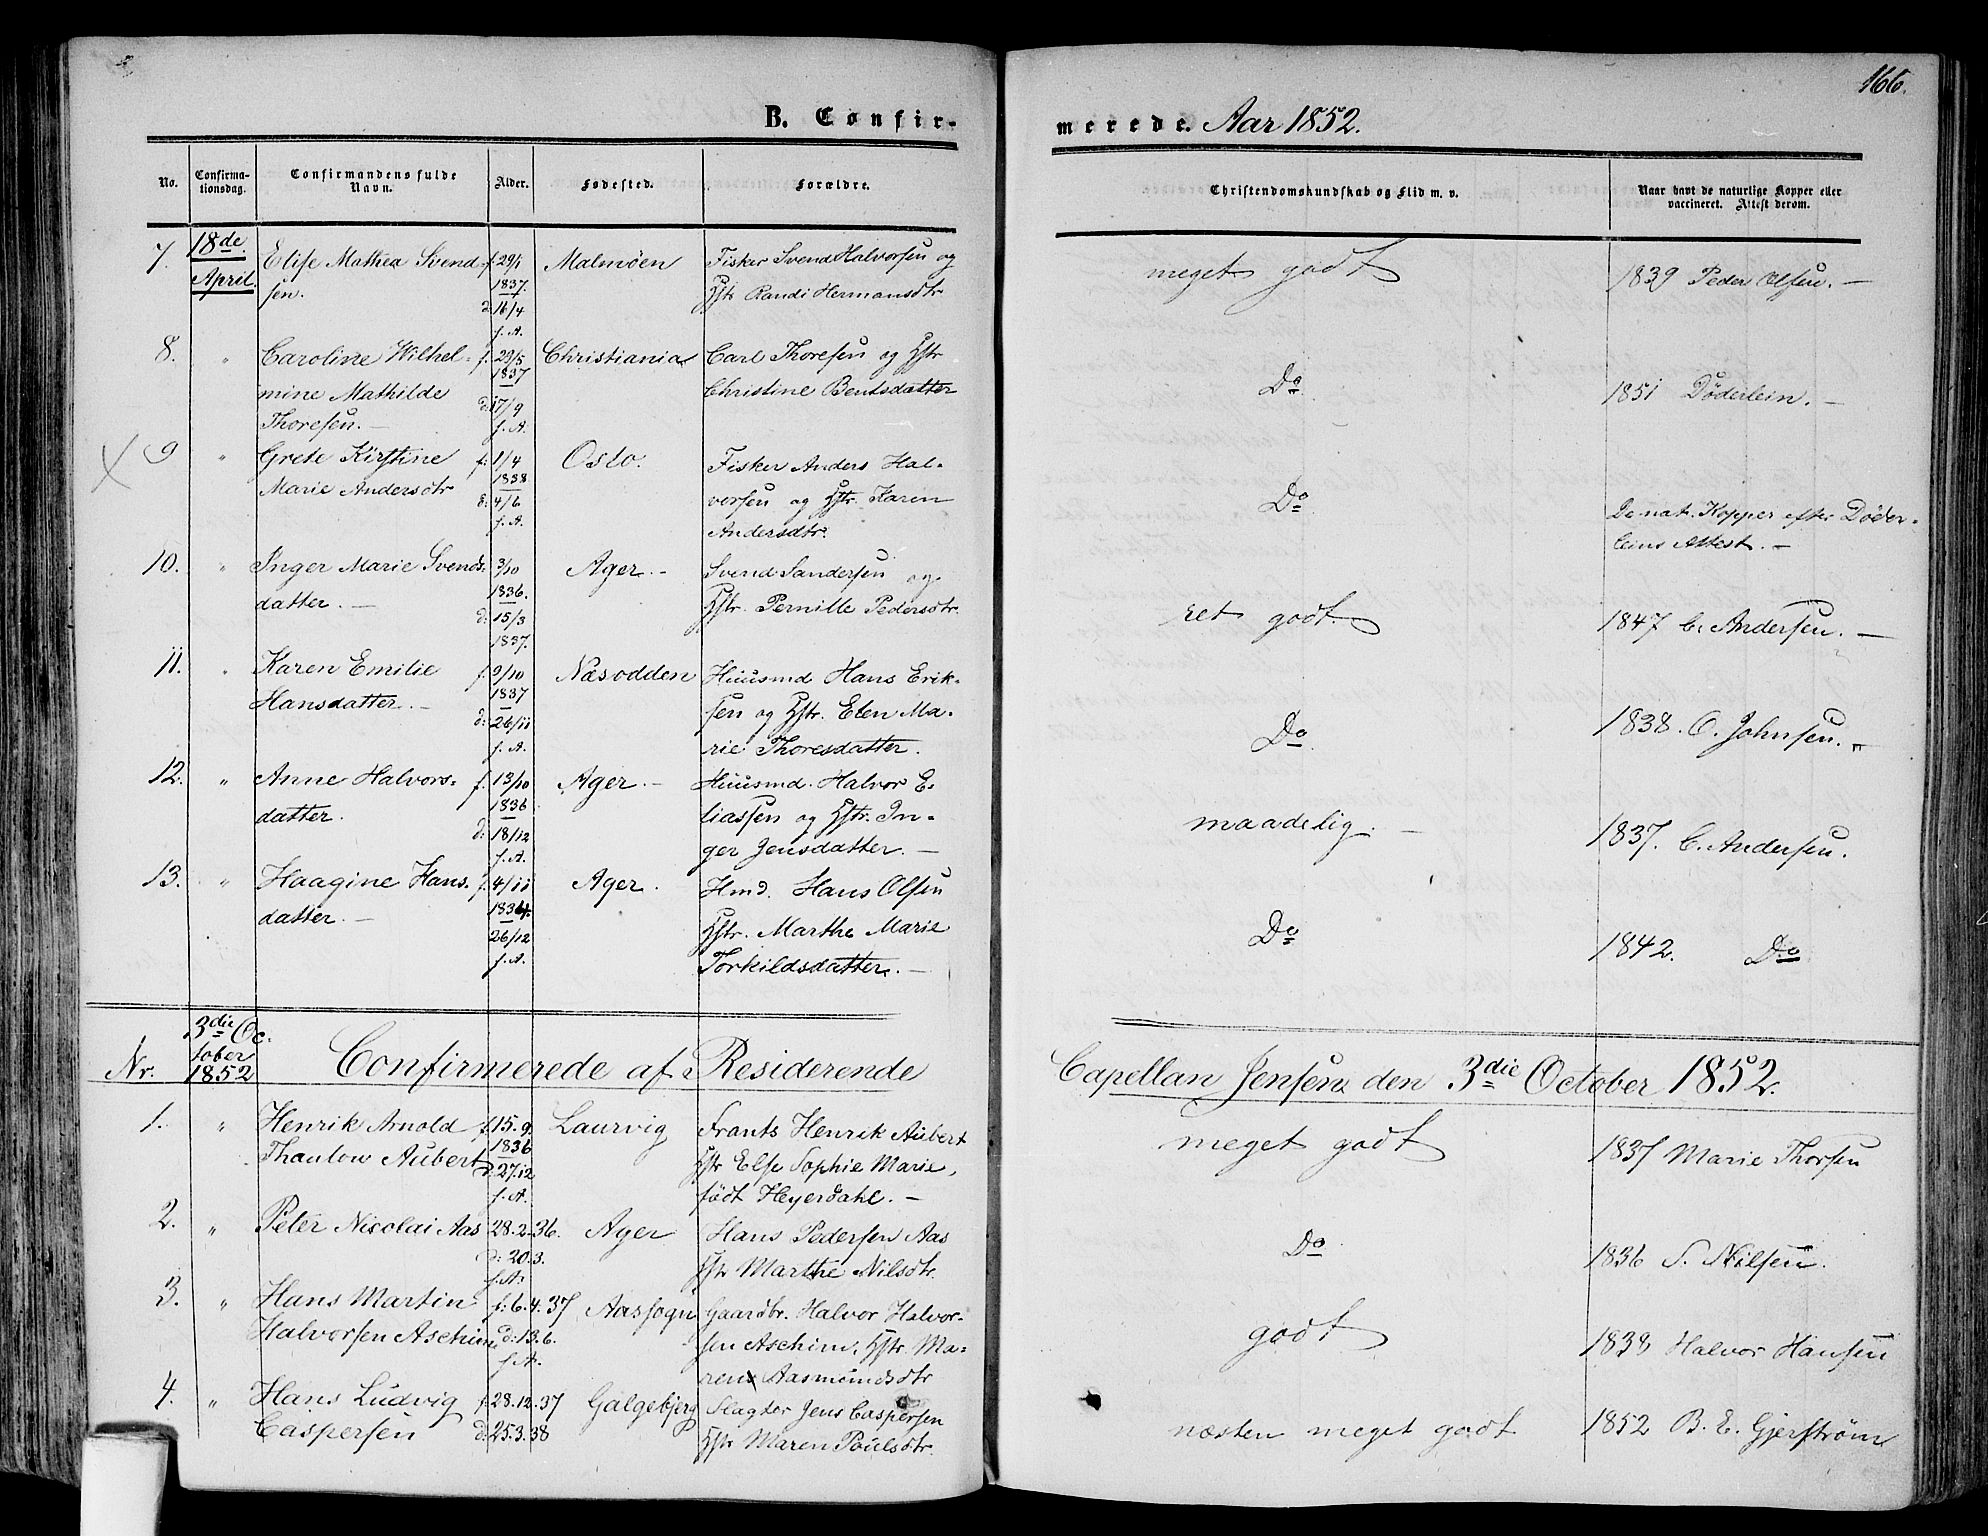 166.
B. Confir-
merede. Aar 1852.
No.
Confirma-
tionsdag.
Confirmandens fulde
Navn.
Alder.
Fødested.
Forældre.
Christendomskundskab og Flid m. v.
Naar havt de naturlige Kopper eller
vaccineret. Attest derom.
7. 18de April. Elise Mathea Svend- f. 29/1 Malmöen Fisker Svend Halvorsen og meget godt 1839 Peder Olsen. —
sen. 1837. Hstr Randi Hermansdtr
d: 16/4
s. A.
8. " Caroline Wilhel- f. 29/5 Christiania Carl Thoresen og Hstr Do 1851 Döderlein. —
mine Mathilde 1837 Christine Bentsdatter
Thoresen. — d. 17/9
s. A.
9 " Grete Kirstine f: 1/4 Oslo. Fisker Anders Hal- Do De nat. Kopper efter Döder-
Marie Andersdtr 1838 vorsen og Hstr. Karen leins Attest. —
d: 4/6 Andersdtr.
s. A.
10. " Inger Marie Svends- 3/10 Ager. — Svend Sandersen og ret godt. 1847 C. Andersen. —
datter. — 1836. Hstr. Pernille Pedersdtr.
d: 15/3
1837.
11. " Karen Emilie f. 9/10 Næsodden Huusmd Hans Erik- Do 1838. O. Johnsen. "
Hansdatter. — 1837 sen og Hstr. Elen Ma-
d: 26/11 rie Thoresdatter.
s. A.
12. " Anne Halvors- f. 13/10 Ager. — Huusmd. Halvor E- maadelig. — 1837. C. Andersen.
datter. 1836 liassen og Hstr. In-
d: 18/12 ger Jensdatter. —
s. A.
13. " Haagine Hans- f. 4/11 Ager. Hmd. Hans Olsen Do 1842. Do
datter. — 1834. Hstr. Marthe Marie
26/12 Torkildsdatter. —
s. A.
Nr. 3die Oc-
tober
1852
Confirmerede af Residerende Capellan Jensen den 3die October 1852.
1. " Henrik Arnold f. 15.9. Laurvig Frants Henrik Aubert meget godt 1837 Marie Thorsen
Thaulow Aubert 1836 Hstr Else Sophie Marie,
d. 27.12 födt Heyerdahl. —
s. A.
2. " Peter Nicolai Aas 28.2.36. Ager Hans Pedersen Aas Do 1836 S. Nilsen.
d: 20.3. Hstr Marthe Nilsdtr.
s. A.
3. " Hans Martin f: 6.4.37 Aas sogn Gaardbr. Halvor Halvor- godt 1838 Halvor Hansen
Halvorsen Aschim d: 13.6. sen Aschim, Hstr. Ma-
s. A. ren Aasmundsdtr
4. " Hans Ludvig f. 28.12.37 Galgebjerg Slagter Jens Caspersen næsten meget godt 1852 B. E. Gjerströms
Caspersen d. 25.3.38 Hstr Maren Poulsdtr.